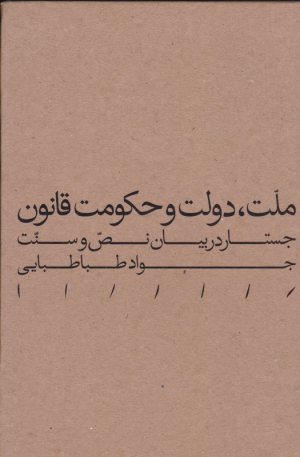 ملّت، دولت و حکومت قانون
جستار در بیان نصّ و سنّت
جواد طباطبایی